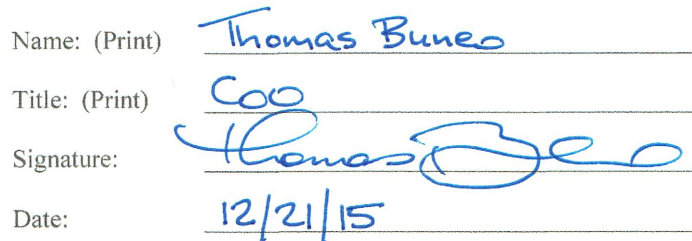 Name: (Print) Thomas Buneo
Title: (Print) COO
Signature: Thomas
Date: 12/21/15